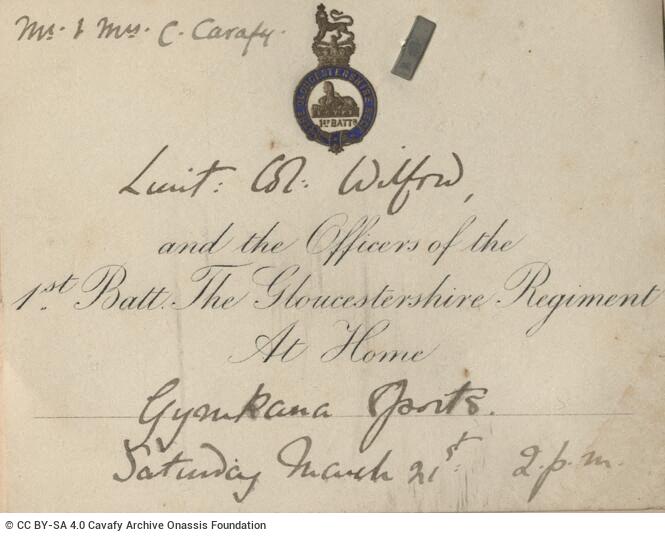 Mr. & Mrs. C. Carafy.
THE GLOUCESTERSHIRE REGT
1ST BATTN
Lieut: Col: Wilford,
and the Officers of the
1st. Batt. The Gloucestershire Regiment
At Home
Gymkana Sports.
Saturday March 21st. 2.p.m.
© CC BY-SA 4.0 Cavafy Archive Onassis Foundation